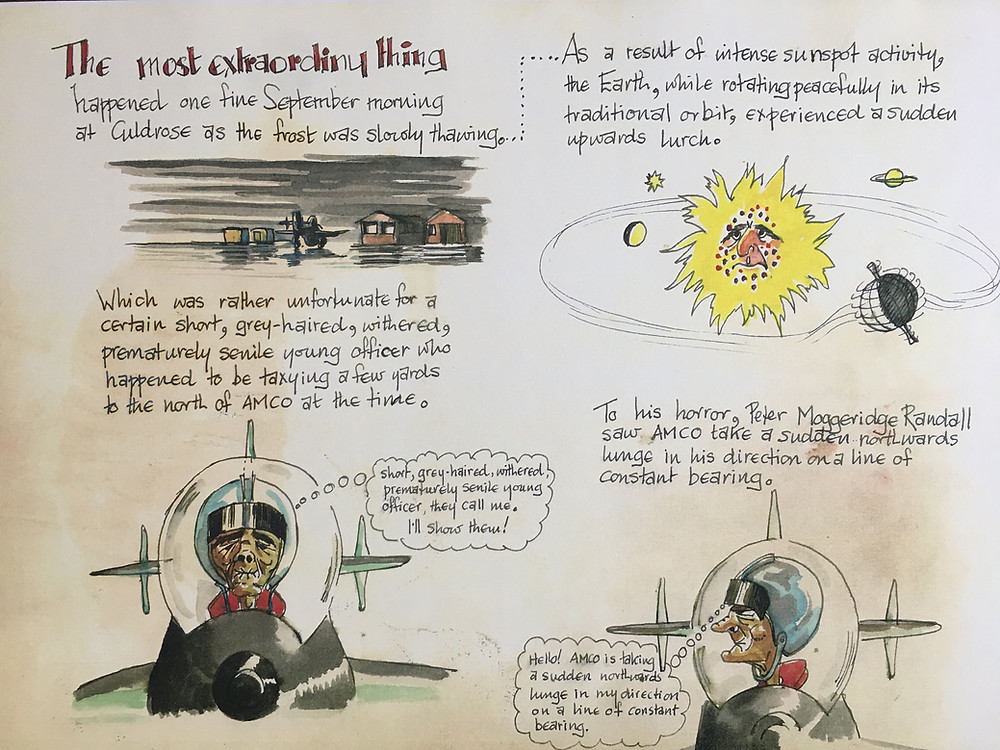 The most extraordiny thing
happened one fine September morning
at Culdrose as the frost was slowly thawing...
....As a result of intense sunspot activity,
the Earth, while rotating peacefully in its
traditional orbit, experienced a sudden
upwards lurch.
Which was rather unfortunate for a
certain short, grey-haired, withered,
prematurely senile young officer who
happened to be taxying a few yards
to the north of AMCO at the time.
short, grey-haired, withered,
prematurely senile young
officer, they call me.
I'll show them!
To his horror, Peter Moggeridge Randall
saw AMCO take a sudden northwards
lunge in his direction on a line of
constant bearing.
Hello! AMCO is taking
a sudden northwards
lunge in my direction
on a line of constant
bearing.